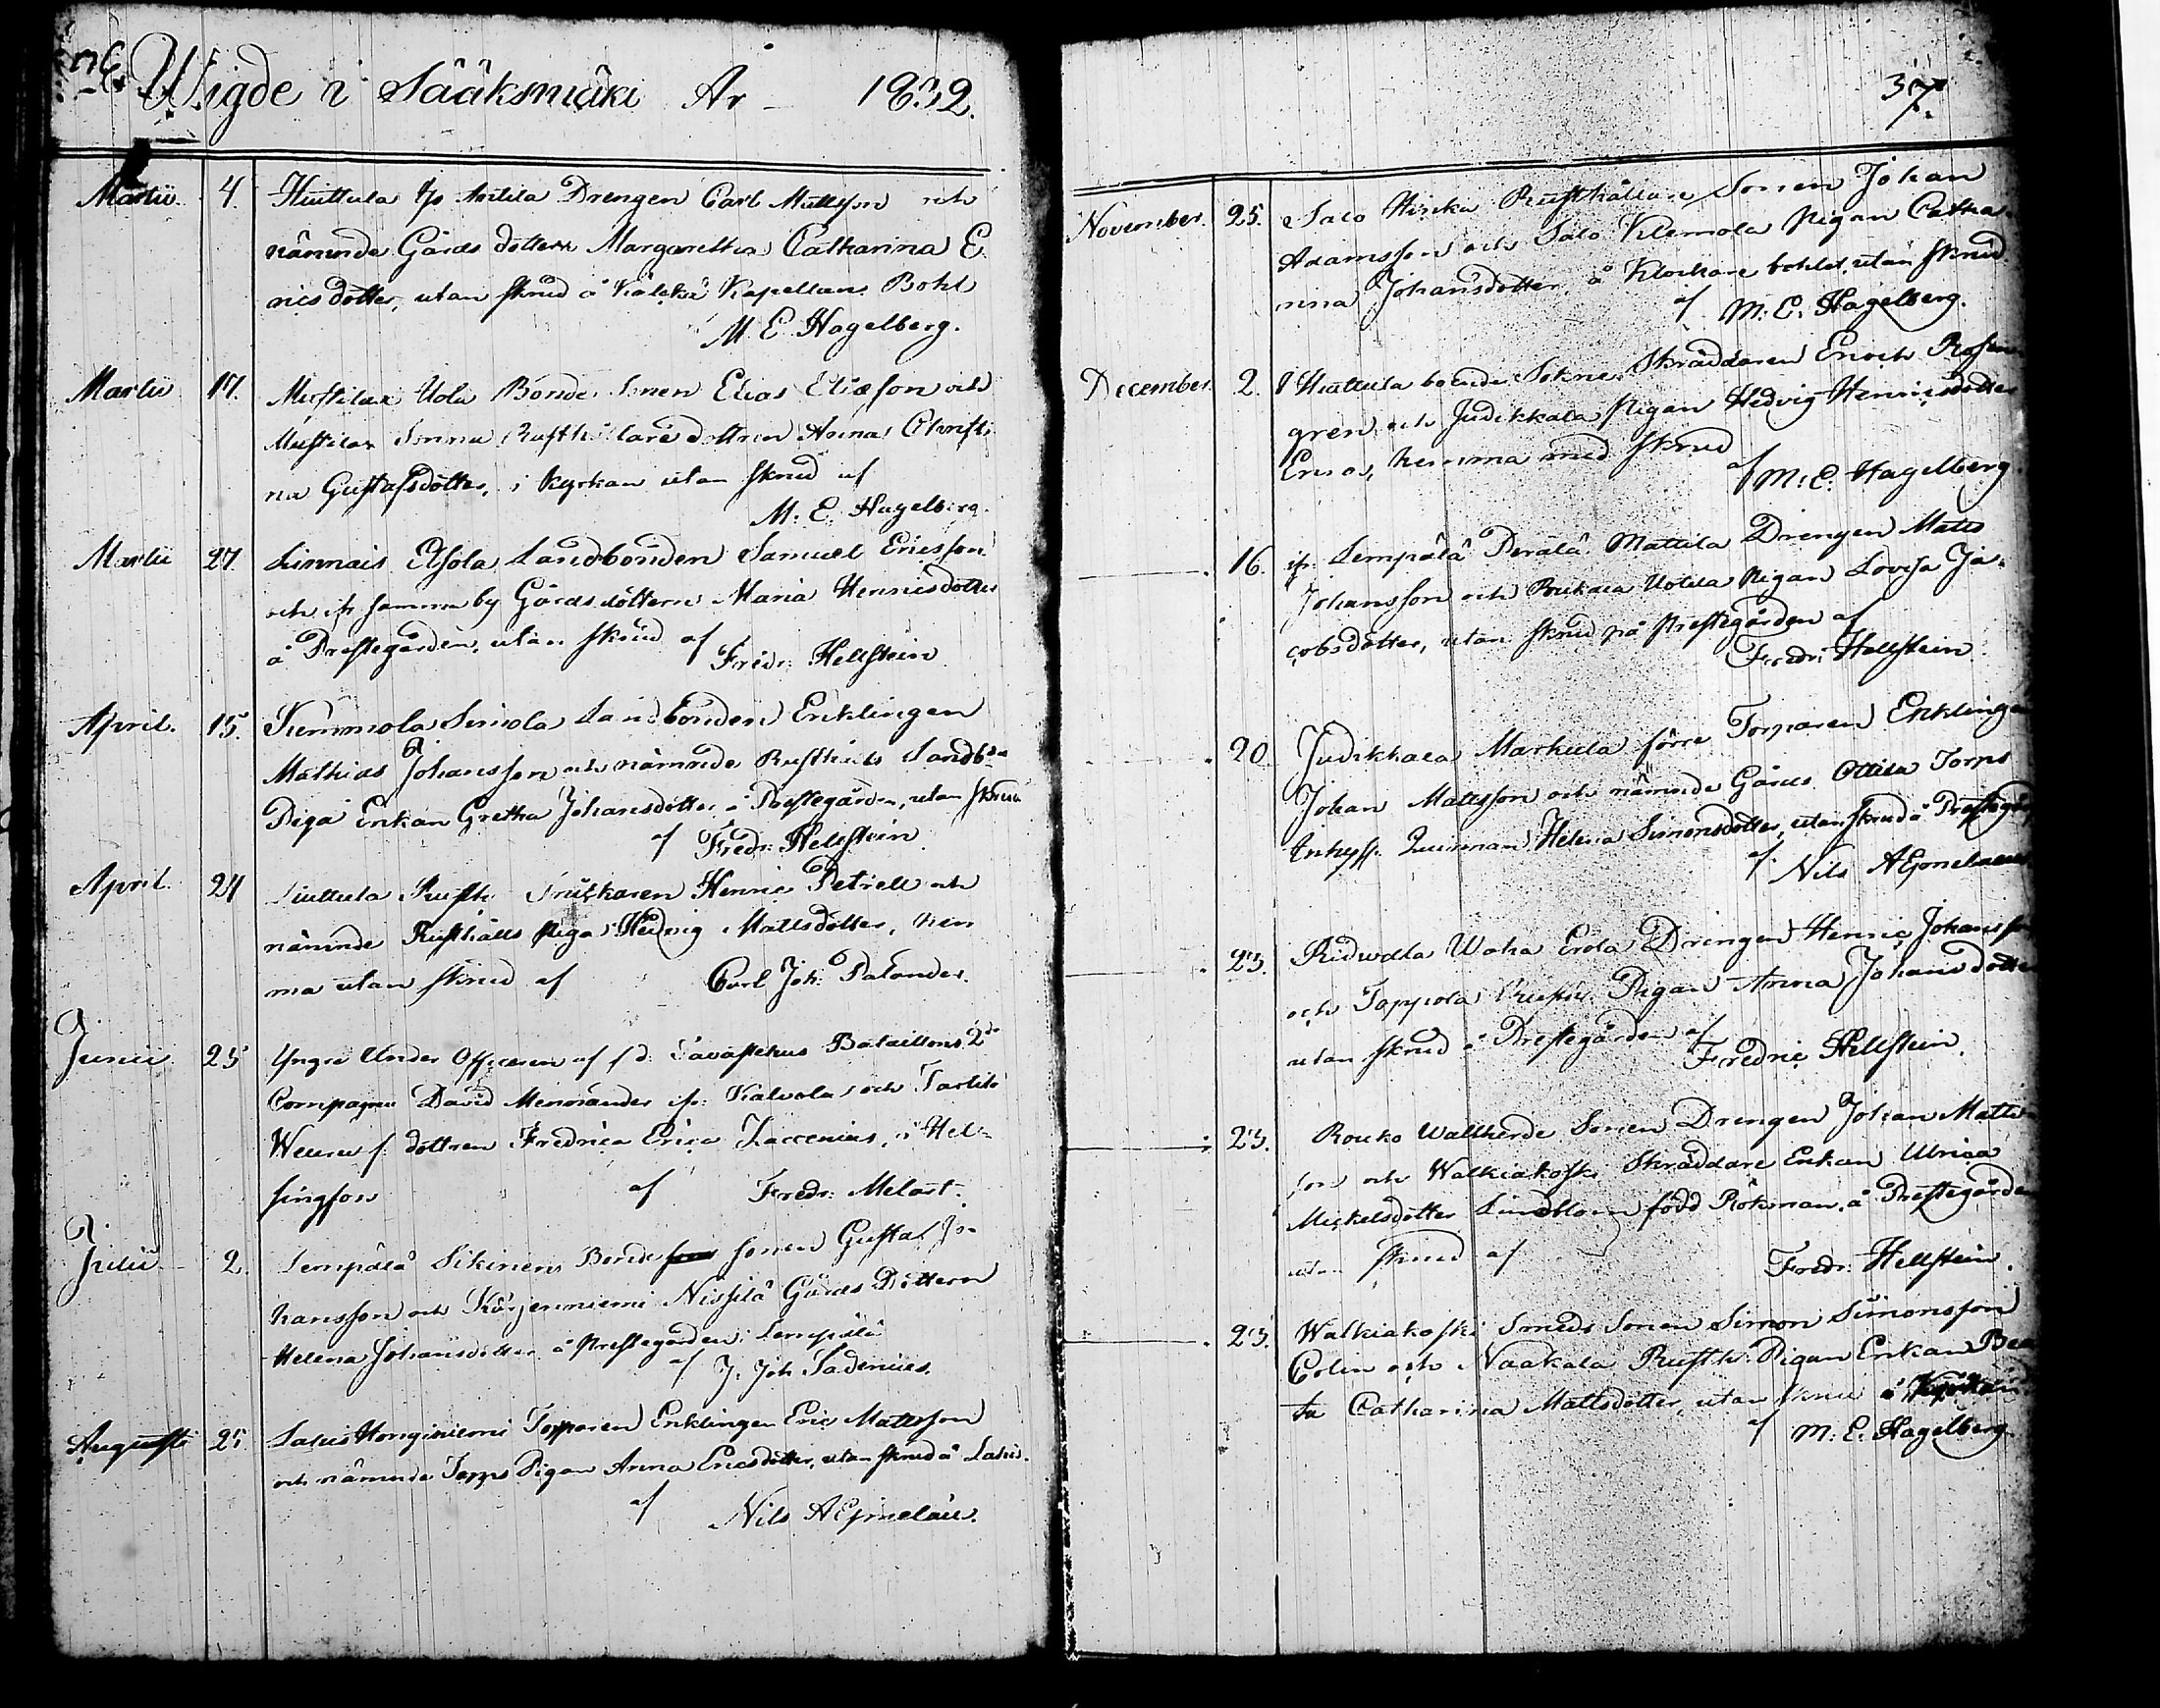 Wigde i Sääksmäki År 1832.
Martii 4. Huittula Drengen Carl Mattsson och
nämnde Gårds dottern Margaretha Catharina E
ricsdotter, utan skrud å Kapellans Bohl
M. E. Hagelberg.
Martii 17. Uola Bonde Sonen Elias Eliæson och
dottren Anna Christi
na Gustafsdotter, i Kyrkan utan skrud af
M: E. Hagelberg.
Martii 27 Linnais Landbonden Samuel Ericsson
och ifr samma by Gårds dottern Maria Henricsdotter
å Prestegården, utan skrud af
Fredr: Hellstein
April. 15. Landbonden Enklingen
Mathias Johansson och nämnde Rusthålls
Piga Enkan Gretha Johansdotter å Prestegården, utan skrud
af Fredr: Hellstein
April. 24 Rusth Henric Petrell och
nämnde Rusthålls piga Hedvig Mattsdotter, hem
ma utan skrud af Carl Joh: Palander.
Junii 25 Yngre Under Officeren af f d: Tavastehus Bataillons 2dra
Compagnie David Menander ifr: Kalvola och
dottren Fredrica Erica i Hel-
singfors af Fredr: Melart.
Julii 2. Lempälä Sikinens Bonde sonen Gustaf Jo-
hansson och Nissilä Gårds Dottern
Helena Johansdotter å Prestegården i Lempälä
af J. Joh Sadenius.
Augusti 25 Torparen Enklingen Eric Mattsson
och nämnde Torps Pigan Anna Ericsdotter, utan skrud å
af Nils AEjmelæus.
37.
November. 25. Salo Rusthållare Sonen Johan
Adamsson och Salo Klemola Pigan Catha
rina Johansdotter, å Klockare bohlet, utan skrud
af M: E. Hagelberg.
December. 2. Huittula boende Sokne Skräddaren Enoch Rosen
gren och Judikkala Pigan Hedvig Henricsdotter
hemma med skrud
af M: E. Hagelberg.
16. ifr. Lempälä Perälä Mattila Drengen Matts
Johansson och Uotila Pigan Lovisa Ja-
cobsdotter, utan skrud på Prestegården af
Fredr: Hellstein
20 Judikkala Markula förre Torparen Enklingen
Johan Mattsson och nämnde Gårds Ottila Torps
Inhyss. Helena Simonsdotter, utan skrud å
af Nils AEjmelaeus
23. Ridvala Uoha Erola Drengen Henric Johansson
och Toppola Pigan Anna Johansdotter
utan skrud å Prestegården af
Fredric Hellstein.
23. Sonen Drengen Johan Matts
son och Walkiakoski Skräddare Enkan Ulrica
Mickelsdotter Lindblom född Rökman, å Prestegården
utan skrud af
Fredr: Hellstein.
23. Walkiakoski Smeds Sonen Simon Simonsson
Colin och Naakala Rusth: Pigan Enkan Bea
ta Catharina Mattsdotter, utan skrud
af M: E. Hagelberg